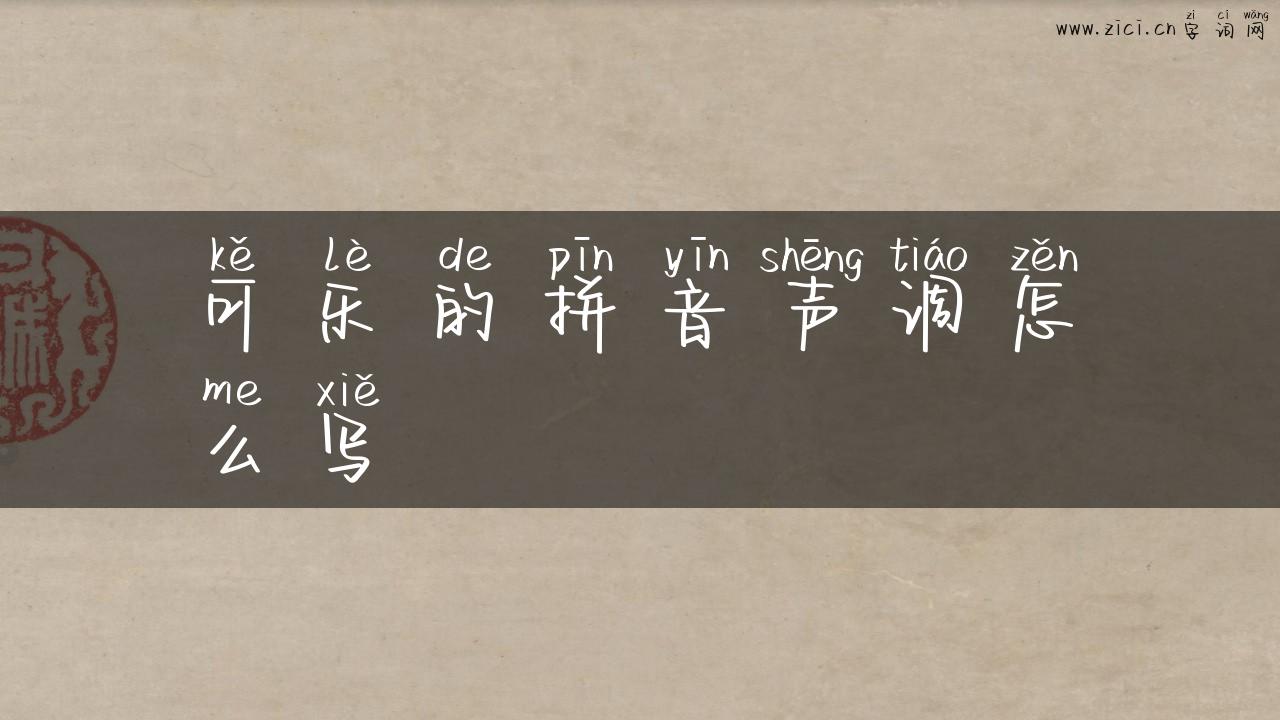 zì cí wǎng
www.zici.cn 字词网
kě lè de pīn yīn shēng tiáo zěn
可乐的拼音声调怎
me xiě
么写